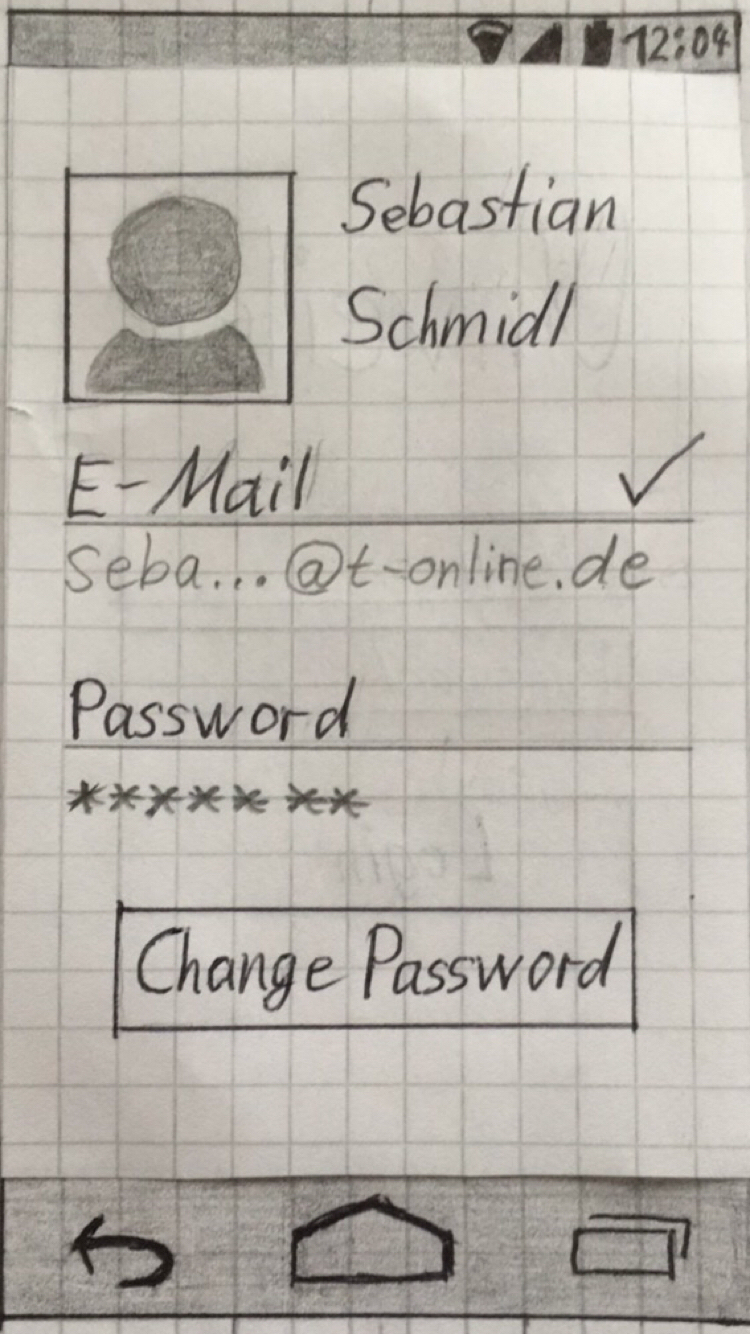 12:04
Sebastian
Schmidl
E-Mail
seba...@t-online.de
Password
*******
Change Password
Login